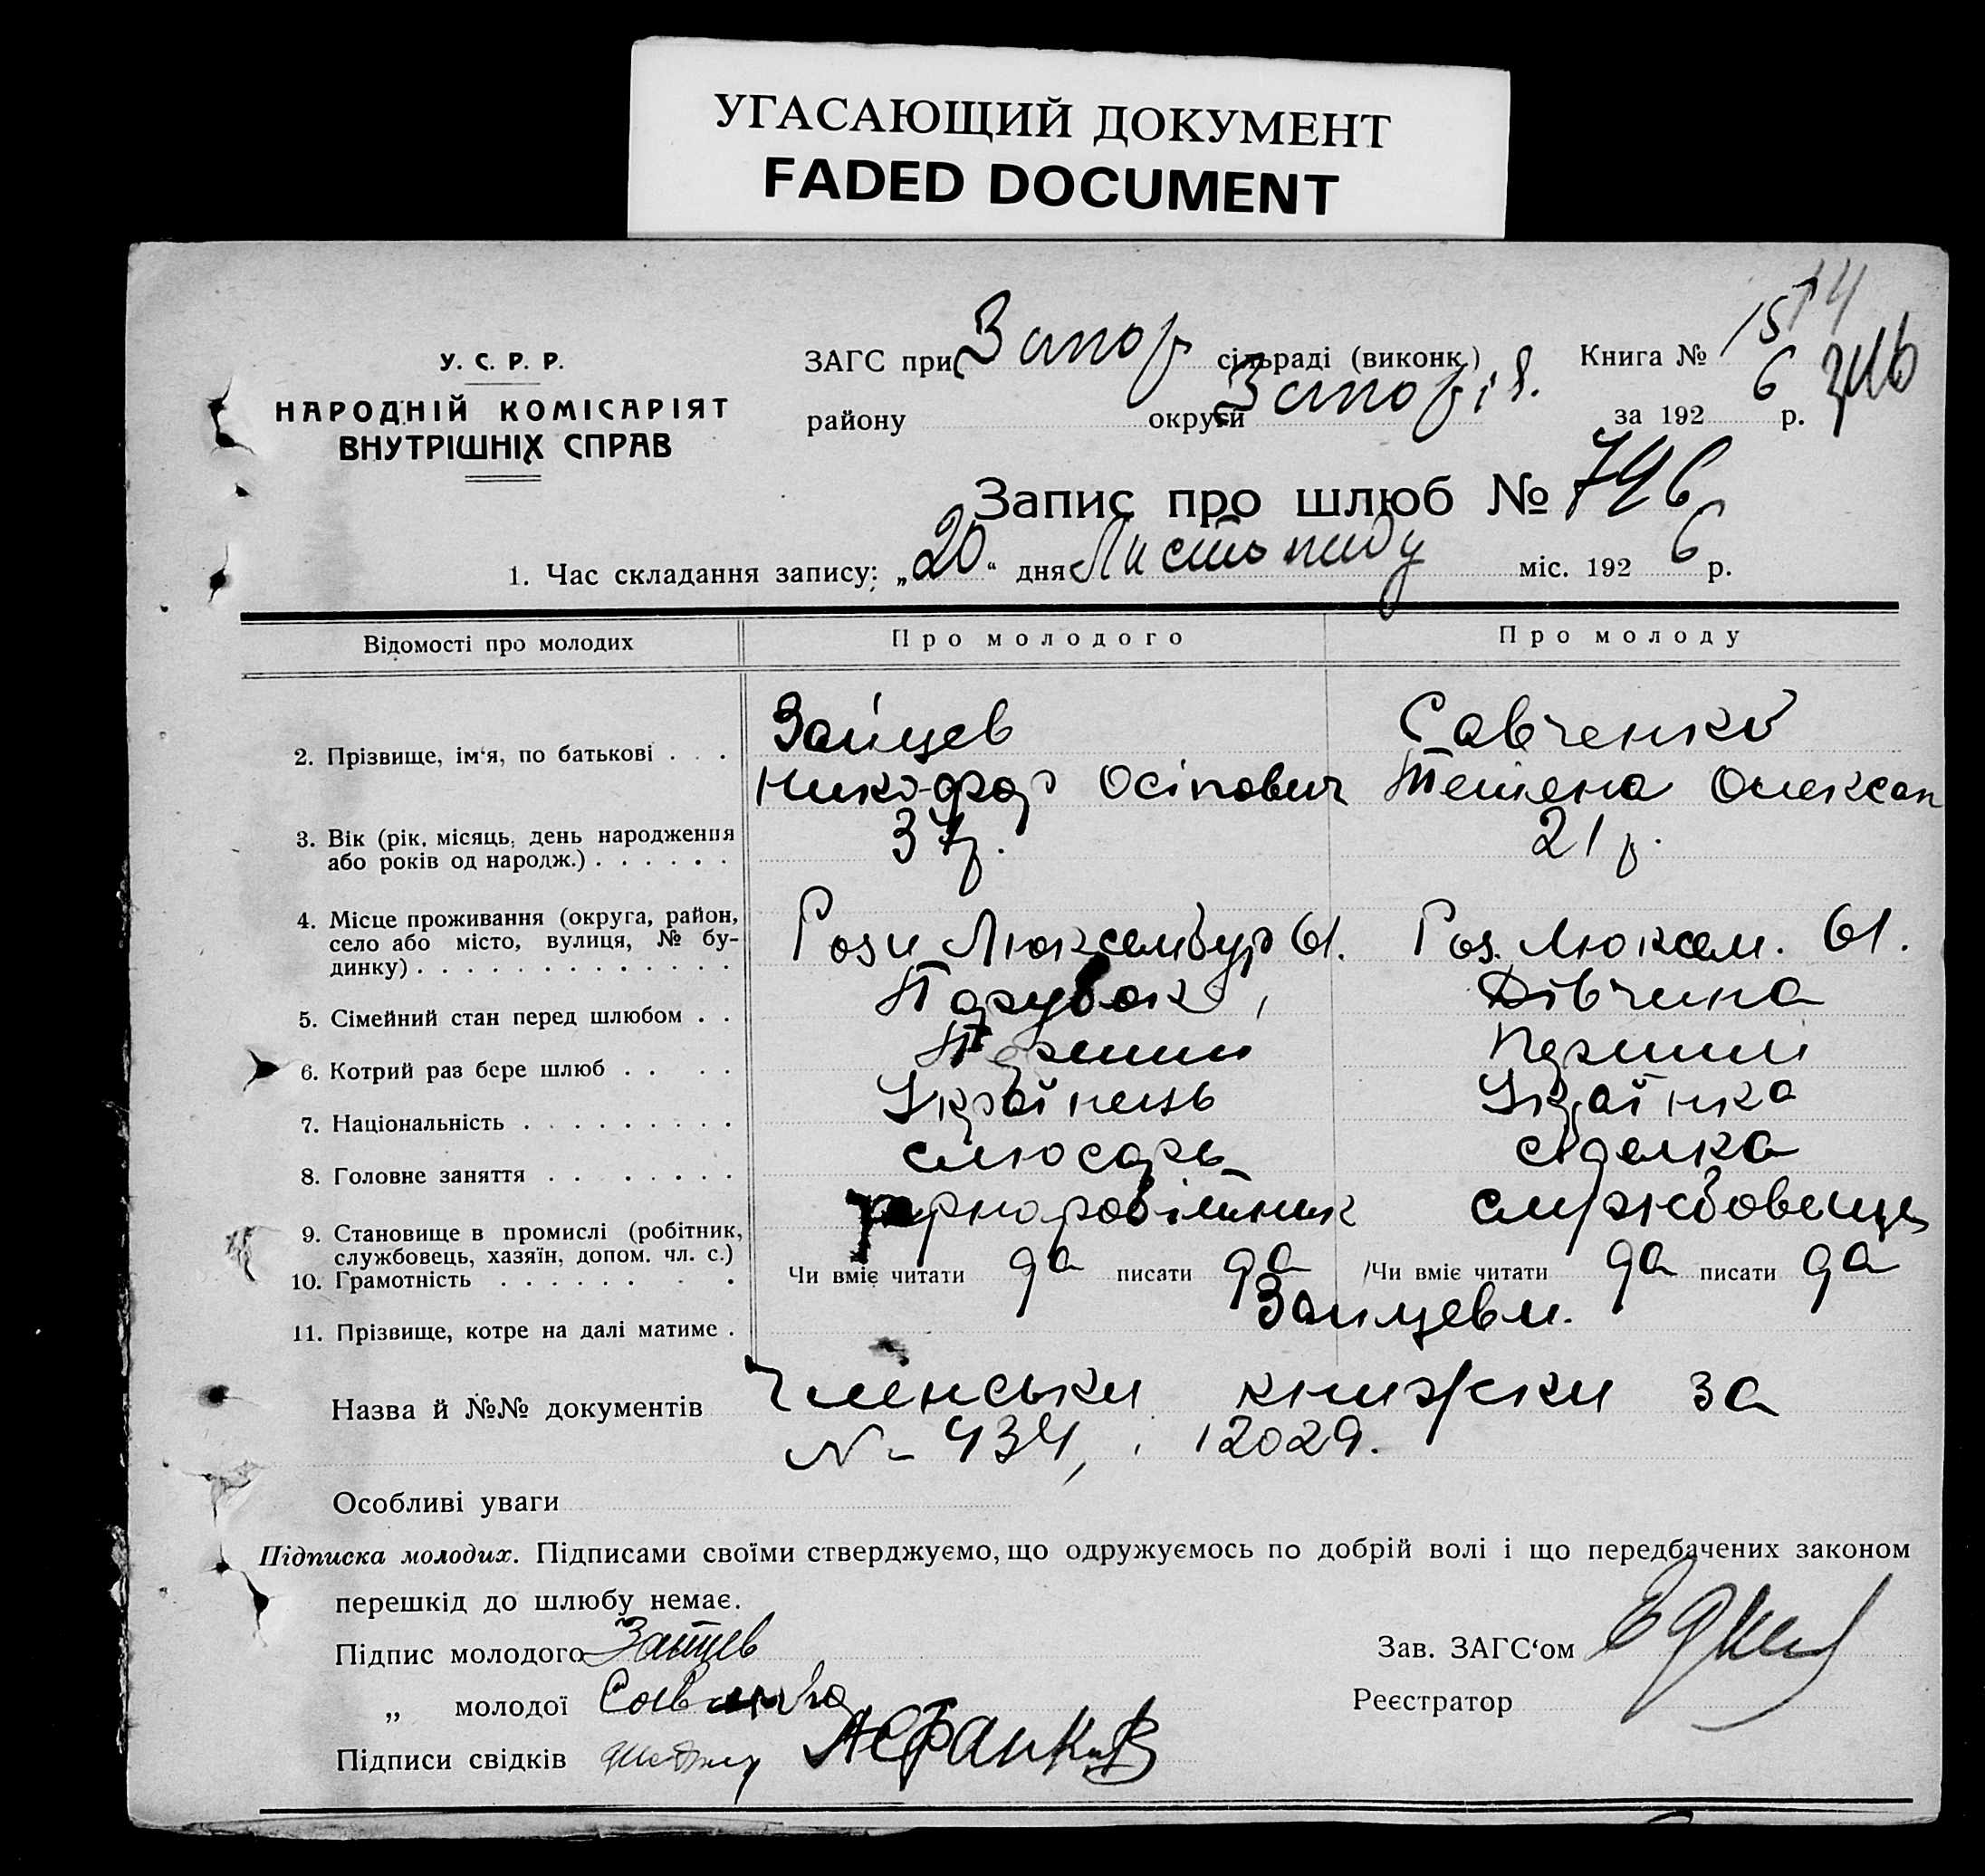 УГАСАЮЩИЙ ДОКУМЕНТ
FADED DOCUMENT
У. С. Р. Р.
НАРОДНІЙ КОМІСАРІЯТ
ВНУТРІШНІХ СПРАВ
ЗАГС при Запор сільраді (виконк.) Книга № 15
району округи Запоріз. за 192 6 р.
Запис про шлюб № 746
1. Час складання запису: „20“ дня Листопаду міс. 192 6 р.
Відомості про молодих Про молодого Про молоду
2. Прізвище, ім‘я, по батькові . . . Зайцев Савченко
Никофор Осіпович Тетена Олексан
3. Вік (рік, місяць, день народження або років од народж.) . . . . . . 37 р. 21 р.
4. Місце проживання (округа, район, село або місто, вулиця, № будинку) . . . . . . . . . . . . . Рози Люксембур 61. Роз. Люксем. 61.
5. Сімейний стан перед шлюбом . . Парубок Дівчина
6. Котрий раз бере шлюб . . . . Перший Перший
7. Національність . . . . . . . . . Українець Українка
8. Головне заняття . . . . . . . . слюсарь сіделка
9. Становище в промислі (робітник, службовець, хазяїн, допом. чл. с.) чорноробітник службовець
10. Грамотність . . . . . . . . Чи вміє читати да писати да Чи вміє читати да писати да
11. Прізвище, котре на далі матиме . Зайцеви.
Назва й №№ документів Членськи книжки за
N- 434, 12029.
Особливі уваги
Підписка молодих. Підписами своїми стверджуємо, що одружуємось по добрій волі і що передбачених законом
перешкід до шлюбу немає.
Підпис молодого Зайцев Зав. ЗАГС‘ом
„ молодої Савченко Реєстратор
Підписи свідків